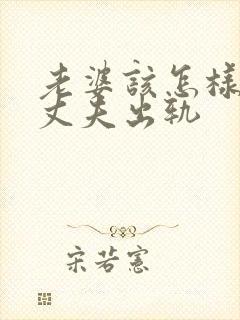 老婆該怎樣
丈夫出軌
宋若憲